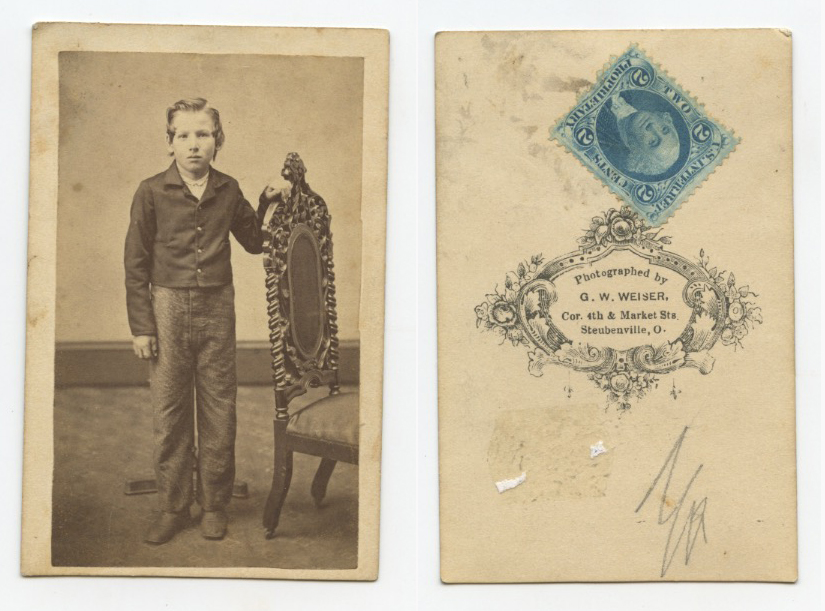 PROPRIETARY
TWO
U.S. INTER. REV.
CENTS
2
2
2
2
Photographed by
G. W. WEISER,
Cor. 4th & Market Sts.
Steubenville, O.